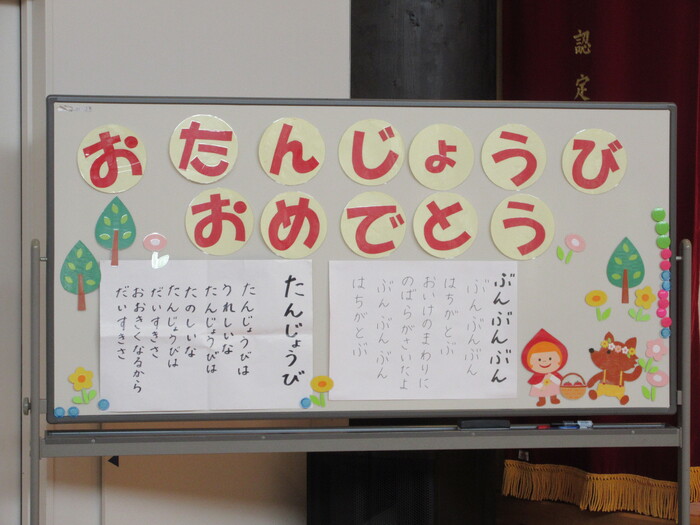 認定
おたんじょうび
おめでとう
ぶんぶんぶん
ぶんぶんぶん
はちがとぶ
おいけのまわりに
のばらがさいたよ
ぶんぶんぶん
はちがとぶ
たんじょうび
たんじょうびは
うれしいな
たんじょうびは
たのしいな
たんじょうびは
だいすきさ
おおきくなるから
だいすきさ